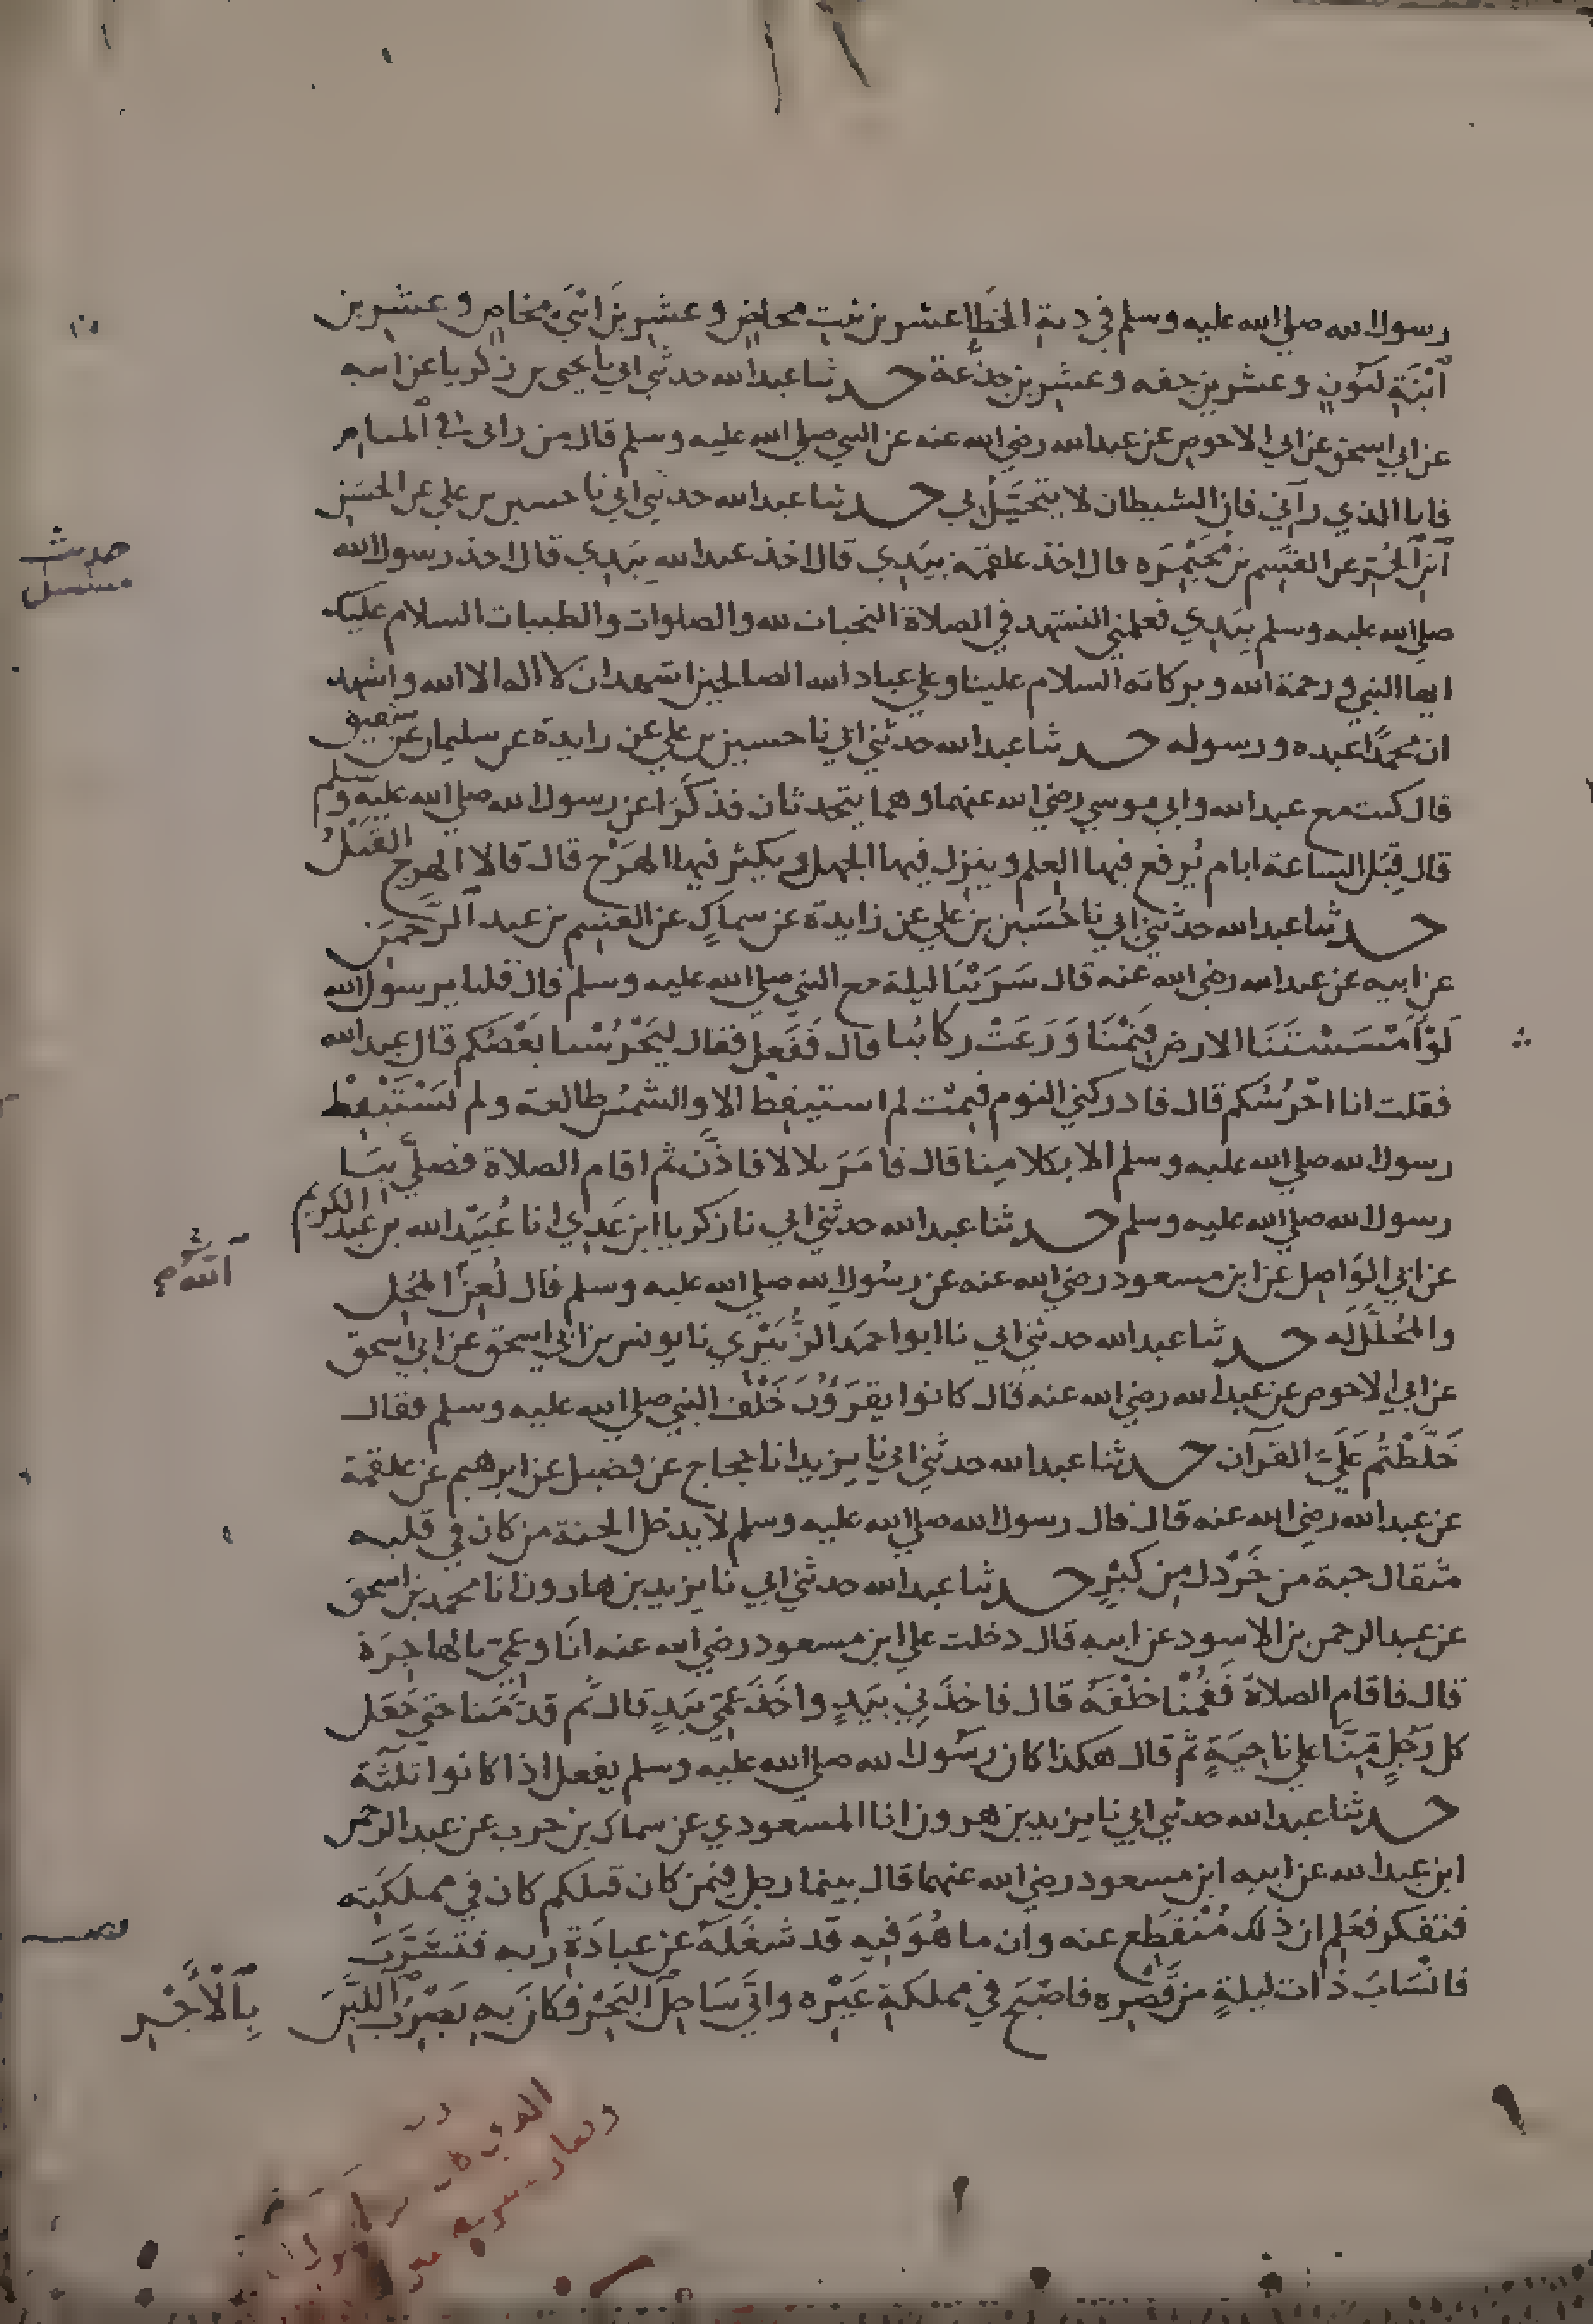 رسول الله صلى الله عليه وسلم في دية الخطإ عشرين بنت مخاض وعشرين ابني مخاض وعشرين
ابنة لبون وعشرين حقه وعشرين جذعة حدثنا عبد الله حدثني ابي نا يحيى بن زكريا عن ابيه
عن ابي اسحق عن ابي الاحوص عن عبد الله رضي الله عنه عن النبي صلى الله عليه وسلم قال من راني في المنام
فانا الذي رآني فان الشيطان لا يتخيل بي حدثنا عبد الله حدثني ابي نا حسين بن علي عن الحسن
ابن الحر عن القسم بن مخيمره قال اخذ علقمة بيدي قال اخذ عبد الله بيدي قال اخذ رسول الله
صلى الله عليه وسلم بيدي فعلمني التشهد في الصلاة التحيات لله والصلوات والطيبات السلام عليك
ايها النبي ورحمة الله وبركاته السلام علينا وعلى عباد الله الصالحين اشهد ان لا اله الا الله واشهد
ان محمدا عبده ورسوله حدثنا عبد الله حدثني ابي نا حسين بن علي عن زايدة عن سليمان عن شقيق
قال كنت مع عبد الله وابي موسي رضي الله عنهما وهما يتحدثان فذكرا عن رسول الله صلى الله عليه وسلم
قال قبل الساعة ايام يُرفع فيها العلم وينزل فيها الجهل ويكثر فيها الهَرْج قال قالا الهرج القَتْلُ
حدثنا عبد الله حدثني ابي نا حُسَين بن علي عن زايدة عن سماكٍ عن القسم بن عبد الرحمن
عن ابيه عن عبد الله رضي الله عنه قال سَرَيْنَا ليلة مع النبي صلى الله عليه وسلم قال قلنا يرسول الله
لَوْ اَمْسَسْتَنَا الارض فَنِمْنَا وَرَعَتْ ركابُنا قال فَفَعل فقال لِيَحْرُسْنا بَعْضكم قال عبد الله
فقلت انا احْرُسُكم قال فادركني النوم فنِمْت لم استيقظ الا والشمس طالعة ولم يَسْتَيْقِظ
رسول الله صلى الله عليه وسلم الا بكلامنا قال فامَرَ بلالا فاذَّن ثم اقام الصلاة فصلَّى بِنَا
رسول الله صلى الله عليه وسلم حدثنا عبد الله حدثني ابي نا زكريا ابن عَدِي انا عُبَيْد الله بن عبد الكريم
عن ابي الوَاصل عن ابن مسعود رضي الله عنه عن رسُول الله صلى الله عليه وسلم قال لُعِنَ المُحِل
والمُحَلَّل له حدثنا عبد الله حدثني ابي نا ابو احمَد الزُّبَيْري نا يونس بن ابي اسحق عن ابي اسحق
عن ابي الاحوص عن عبد الله رضي الله عنه قال كانوا يقرَؤُنَ خَلْف النبي صلى الله عليه وسلم فقال
خَلَّطْتُم عَلَيَّ القرآن حدثنا عبد الله حدثني ابي نا يزيد انا حجاج عن فضيل عن ابرهيم عن علقمة
عن عبد الله رضي الله عنه قال قال رسول الله صلى الله عليه وسلم لا يدخل الجنة من كان في قلبه
مثقال حبة من خَرْدل من كِبْرٍ حدثنا عبد الله حدثني ابي نا يزيد بن هارون انا محمد بن اسحق
عن عبد الرحمن بن الاسود عن ابيه قال دخلت علي ابن مسعود رضي الله عنه انَا وعمي بالهاجرَة
قال فاقام الصلاة فَقُمْنا خلْفَهُ قال فاخذَ بي بيَدٍ واخَذَ عَمِي بيَدٍ قال ثم قدَّمَنا حتي جَعَل
كل رَجُلٍ مِنَّا علي ناحِيَةٍ ثم قال هكذا كان رسُول الله صلى الله عليه وسلم يفعل اذا كانوا ثلثة
حدثنا عبد الله حدثني ابي نا يزيد بن هرون انا المسعودي عن سماك بن حرب عن عبد الرحمن
ابن عبد الله عن ابيه ابن مسعود رضي الله عنهما قال بينما رجل فيمن كان قبلكم كان في مملكَتِه
فتفكر فعَلِم ان ذلك مُنْقطِع عنه وأن ما هُوَ فيه قد شغَلَهُ عن عبادَةِ ربه فتسَرَّبَ
فانْسَابَ ذات ليلةٍ من قَصْرِه فاصْبَح في مملكةِ غَيْرِه واتَى سَاحِلَ البَحْر فكان بِه يَضْرِبُ اللَّبِنَ بِالْأَجْرِ
حديث
مسلسل